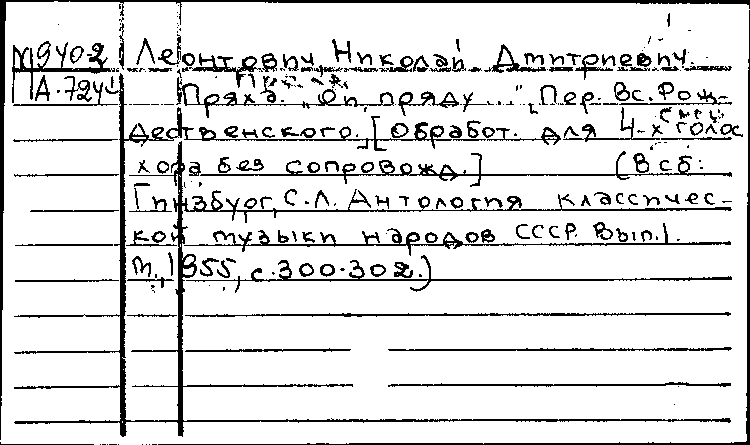 М940-2 Леонтович, Николай Дмитриевич.
А-724
Пряха. "Ой, пряду..." [Пер. Вс. Рож-
дественского.] [Обработ. для 4-х голос
смеш
хора без сопровожд.] (В сб:
Гинзбург, С.Л. Антология классичес-
кой музыки народов СССР. Вып.1.
М., 1955, с.300-302.)